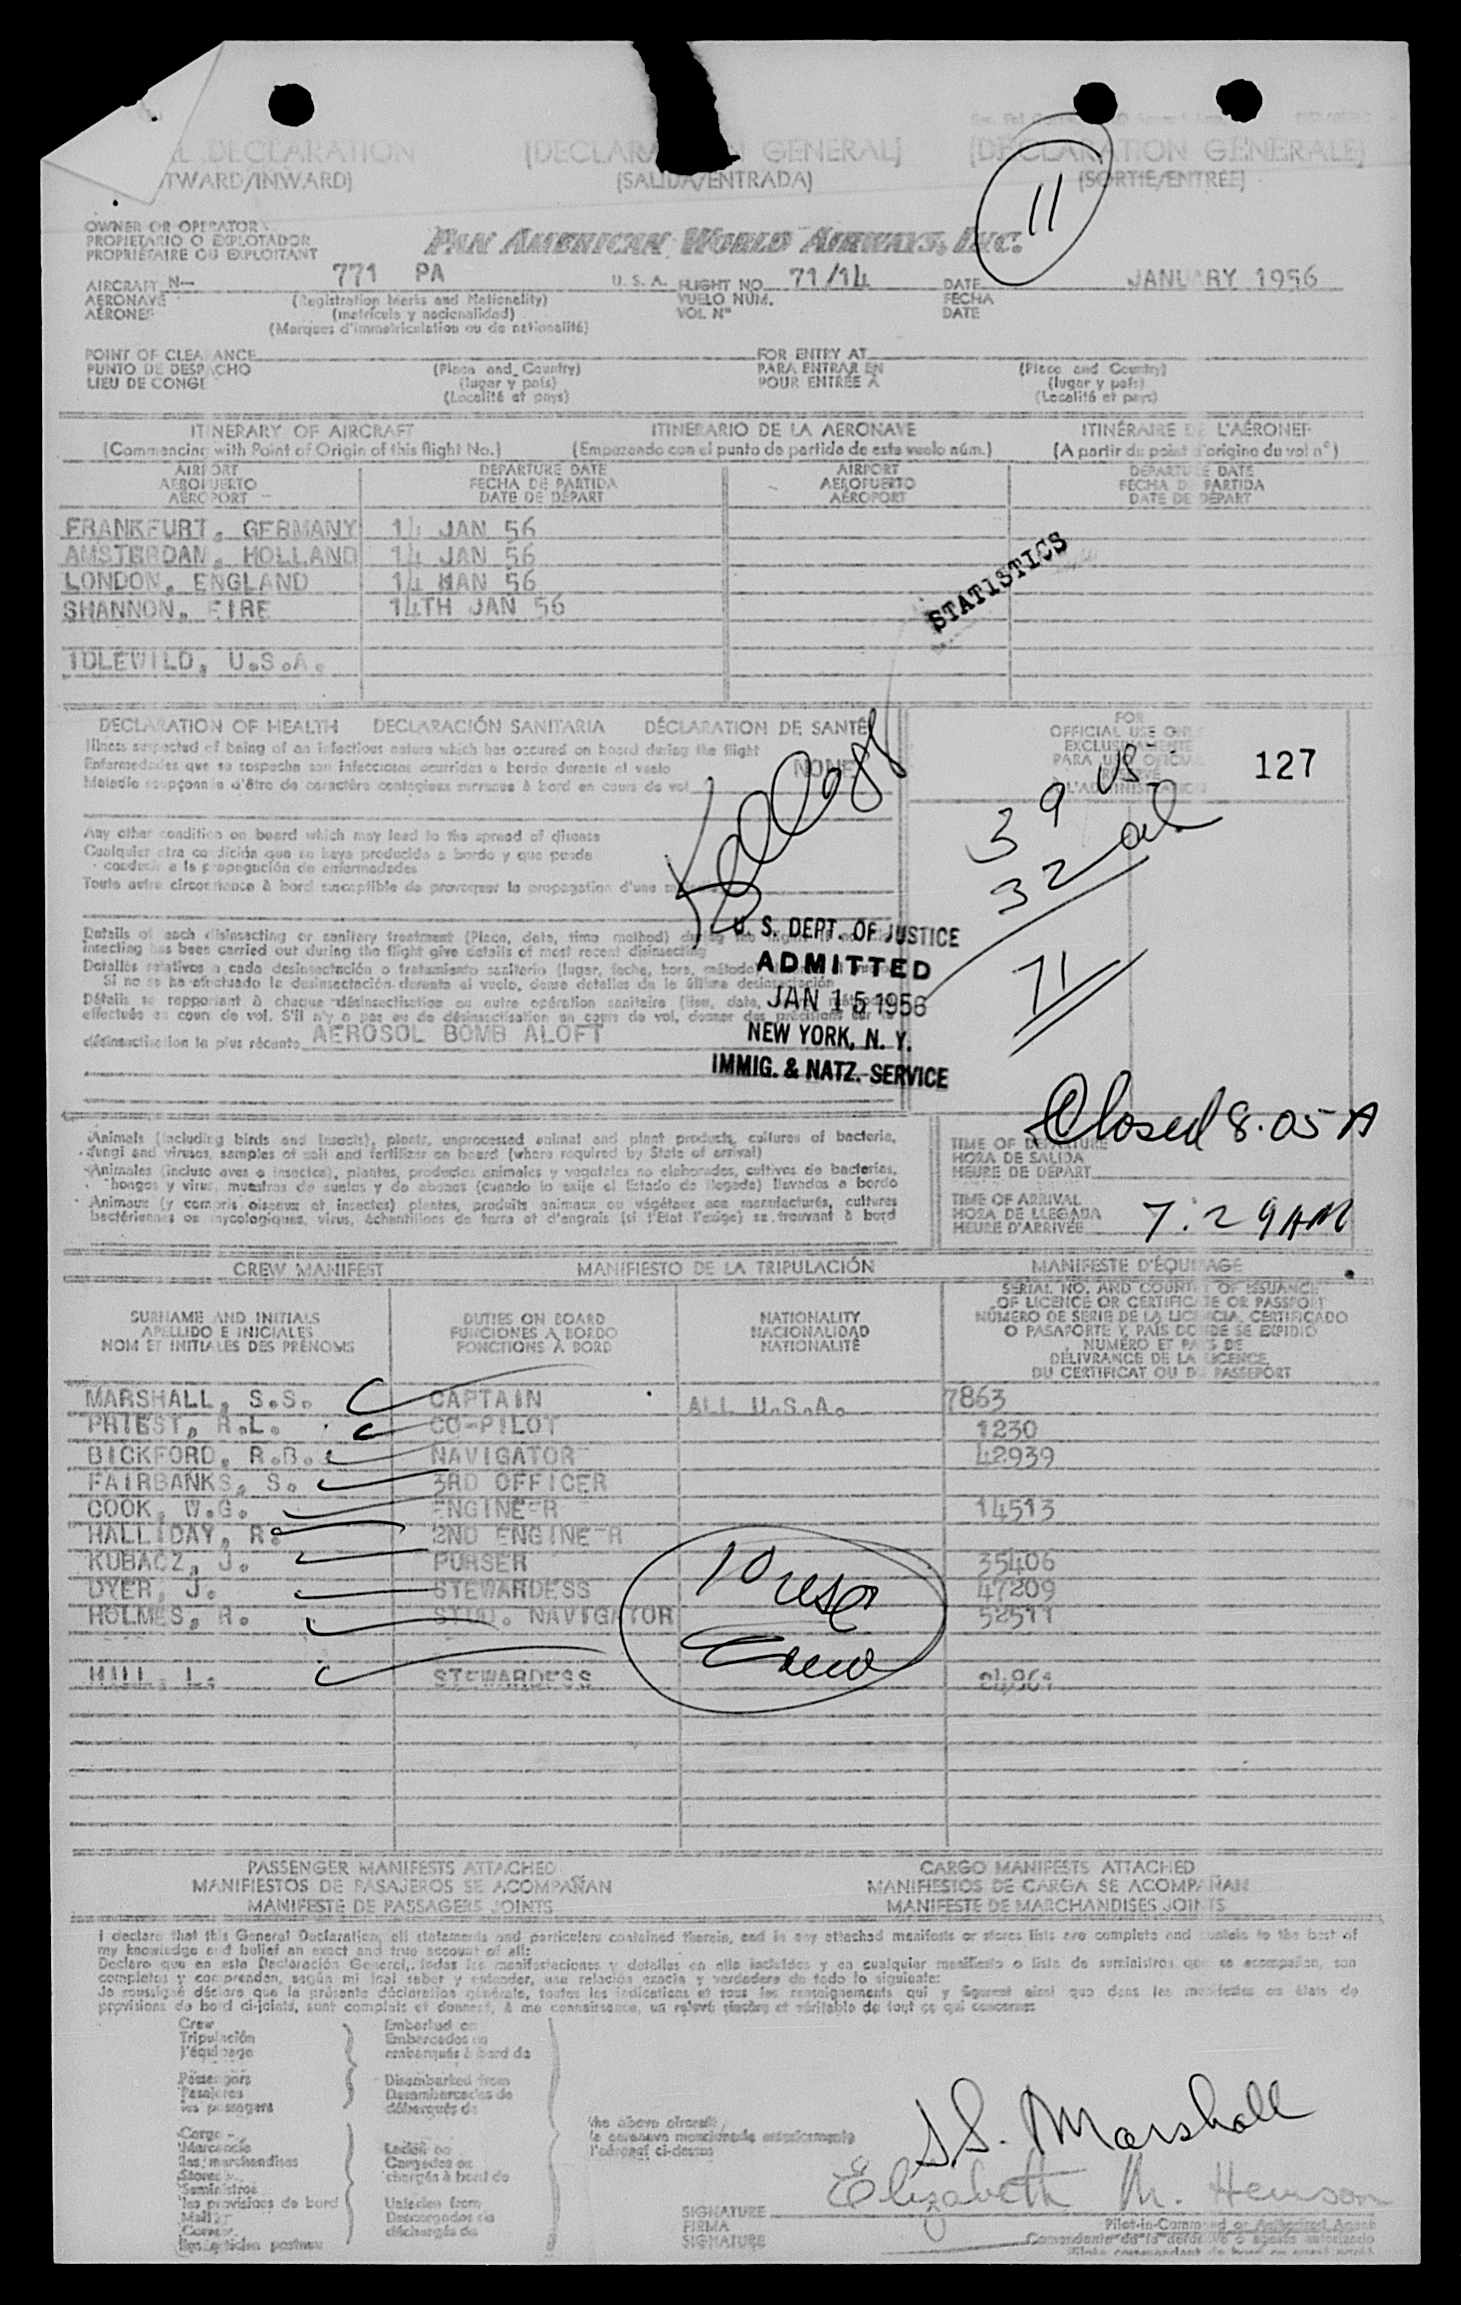 L DECLARATION [DECLARA N GENERAL] [DECLARATION GÉNÉRALE]
TWARD/INWARD) (SALIDA/ENTRADA) (SORTIE/ENTRÉE)
11
OWNER OR OPERATOR
PROPIETARIO O EXPLOTADOR
PROPRIÉTAIRE OU EXPLOITANT
PAN AMERICAN WORLD AIRWAYS, INC.
AIRCRAFT N- 771 PA U. S. A. FLIGHT NO. 71/14 DATE JANUARY 1956
AERONAVE (Registration Marks and Nationality) VUELO NÚM. FECHA
AÉRONEF (matrícula y nacionalidad) VOL Nº DATE
(Marques d'immatriculation ou de nationalité)
POINT OF CLEARANCE FOR ENTRY AT
PUNTO DE DESPACHO (Place and Country) PARA ENTRAR EN (Place and Country)
LIEU DE CONGÉ (lugar y país) POUR ENTRÉE À (lugar y país)
(Localité et pays) (Localité et pays)
ITINERARY OF AIRCRAFT ITINERARIO DE LA AERONAVE ITINÉRAIRE DE L'AÉRONEF
(Commencing with Point of Origin of this flight No.) (Empezando con el punto de partida de este vuelo núm.) (A partir du point d'origine du vol nº)
AIRPORT DEPARTURE DATE AIRPORT DEPARTURE DATE
AEROPUERTO FECHA DE PARTIDA AEROPUERTO FECHA DE PARTIDA
AÉROPORT DATE DE DÉPART AÉROPORT DATE DE DÉPART
FRANKFURT, GERMANY 14 JAN 56
AMSTERDAM, HOLLAND 14 JAN 56
LONDON, ENGLAND 14 MAN 56
SHANNON, EIRE 14TH JAN 56
STATISTICS
IDLEWILD, U.S.A.
DECLARATION OF HEALTH DECLARACIÓN SANITARIA DÉCLARATION DE SANTÉ
Illness suspected of being of an infectious nature which has occured on board during the flight
Enfermedades que se sospecha son infecciosas ocurridas a bordo durante el vuelo NONE
Maladie soupçonnée d'être de caractère contagieux survenue à bord en cours de vol
FOR
OFFICIAL USE ONLY
EXCLUSIVAMENTE
PARA USO OFICIAL
RÉSERVÉ
À L'ADMINISTRATION
127
39 US
32 al
71
Kellogg
Any other condition on board which may lead to the spread of disease
Cualquier otra condición que se haya producido a bordo y que pueda
conducir a la propagación de enfermedades
Toute autre circonstance à bord susceptible de provoquer la propagation d'une
Details of each disinsecting or sanitary treatment (Place, date, time method) during the flight
insecting has been carried out during the flight give details of most recent disinsecting
Detalles relativos a cada desinsectación o tratamiento sanitario (lugar, fecha, hora, método)
Si no se ha efectuado la desinsectación durante el vuelo, dense detalles de la última desinsectación
Détails se rapportant à chaque désinsectisation ou autre opération sanitaire (lieu, date,
effectuée en cours de vol. S'il n'y a pas eu de désinsectisation en cours de vol, donner des précisions sur la
désinsectisation la plus récente AEROSOL BOMB ALOFT
U. S. DEPT. OF JUSTICE
ADMITTED
JAN 15 1956
NEW YORK, N. Y.
IMMIG. & NATZ. SERVICE
Closed 8.05 A
Animals (including birds and insects), plants, unprocessed animal and plant products, cultures of bacteria,
fungi and viruses, samples of soil and fertilizer on board (where required by State of arrival)
Animales (incluso aves o insectos), plantas, productos animales y vegetales no elaborados, cultivos de bacterias,
hongos y virus, muestras de suelos y de abonos (cuando lo exije el Estado de llegada) llevados a bordo
Animaux (y compris oiseaux et insectes) plantes, produits animaux ou végétaux non manufacturés, cultures
bactériennes ou mycologiques, virus, échantillons de terre et d'engrais (si l'Etat l'exige) se trouvant à bord
TIME OF DEPARTURE
HORA DE SALIDA
HEURE DE DÉPART
TIME OF ARRIVAL
HORA DE LLEGADA
HEURE D'ARRIVÉE 7:29AM
CREW MANIFEST MANIFIESTO DE LA TRIPULACIÓN MANIFESTE D'ÉQUIPAGE
SURNAME AND INITIALS
APELLIDO E INICIALES
NOM ET INITIALES DES PRÉNOMS
DUTIES ON BOARD
FUNCIONES A BORDO
FONCTIONS À BORD
NATIONALITY
NACIONALIDAD
NATIONALITÉ
SERIAL NO. AND COUNTRY OF ISSUANCE
OF LICENCE OR CERTIFICATE OR PASSPORT
NÚMERO DE SERIE DE LA LICENCIA, CERTIFICADO
O PASAPORTE Y PAÍS DONDE SE EXPIDIÓ
NUMÉRO ET PAYS DE
DÉLIVRANCE DE LA LICENCE,
DU CERTIFICAT OU DU PASSEPORT
MARSHALL, S.S. CAPTAIN ALL U.S.A. 7863
PRIEST, R.L. CO-PILOT 1230
BICKFORD, R.B. NAVIGATOR 42939
FAIRBANKS, S. 3RD OFFICER
COOK, W.G. ENGINEER 14513
HALLIDAY, R. 2ND ENGINEER
KUBACZ, J. PURSER 35406
DYER, J. STEWARDESS 47209
HOLMES, R. STUD. NAVIGATOR 52511
HILL, L. STEWARDESS
10 usa
Crew
PASSENGER MANIFESTS ATTACHED CARGO MANIFESTS ATTACHED
MANIFIESTOS DE PASAJEROS SE ACOMPAÑAN MANIFIESTOS DE CARGA SE ACOMPAÑAN
MANIFESTE DE PASSAGERS JOINTS MANIFESTE DE MARCHANDISES JOINTS
I declare that this General Declaration, all statements and particulars contained therein, and in any attached manifests or stores lists are complete and contain to the best of
my knowledge and belief an exact and true account of all:
Declaro que en esta Declaración General, todas las manifestaciones y detalles en ella incluidos y en cualquier manifiesto o lista de suministros que se acompañan, son
completos y comprenden, según mi leal saber y entender, una relación exacta y verdadera de todo lo siguiente:
Je soussigné déclare que la présente déclaration générale, toutes les indications et tous les renseignements qui y figurent ainsi que dans les manifestes ou états de
provisions de bord ci-joints, sont complets et donnent, à ma connaissance, un relevé sincère et véritable de tout ce qui concerne:
Crew Embarked on
Tripulación Embarcados en
l'équipage embarqués à bord de
Passengers Disembarked from
Pasajeros Desembarcados de
les passagers débarqués de
the above aircraft,
la aeronave mencionada anteriormente
l'aéronef ci-dessus
Cargo
Mercancía Laden on
les marchandises Cargados en
Stores chargés à bord de
Suministros
les provisions de bord Unladen from
Mail Descargados de
Correo déchargés de
les articles postaux
S.S. Marshall
Elizabeth M. Hewson
SIGNATURE
FIRMA
SIGNATURE
Pilot-in-Command or Authorized Agent
Comandante de la aeronave o agente autorizado